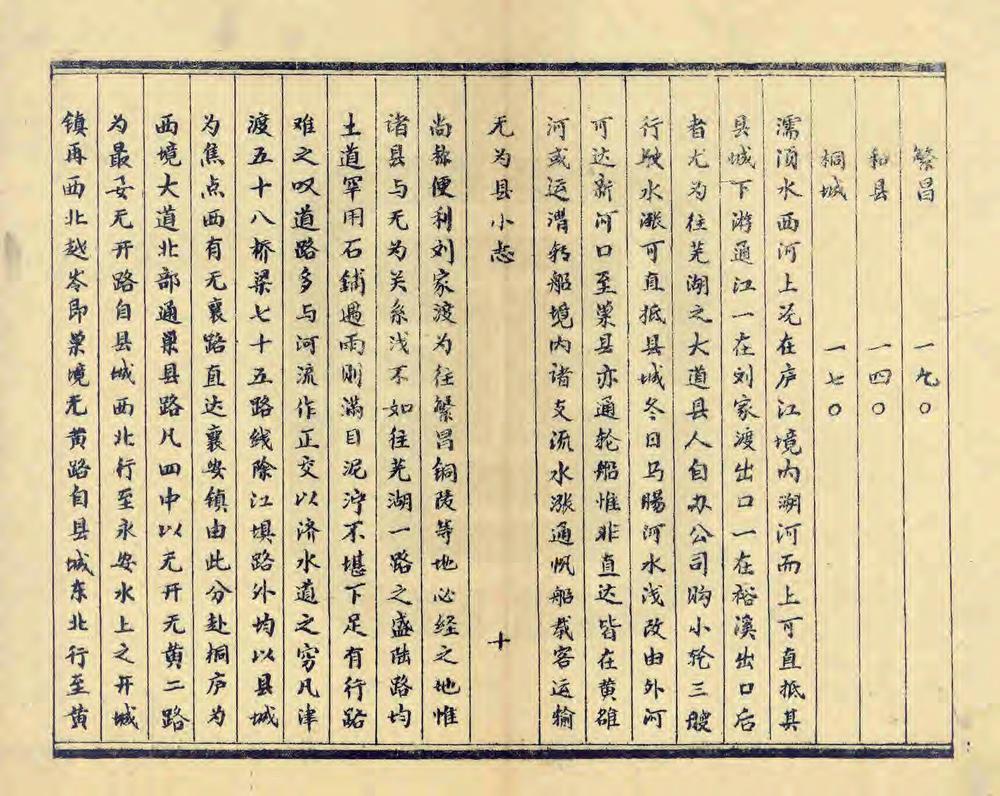 繁昌 一九〇
和县 一四〇
桐城 一七〇
濡须水西河上茫在庐江境内溯河而上可直抵其
县城下游通江一在刘家渡出口一在裕溪出口后
者尤为往芜湖之大道县人自办公司购小轮三艘
行驶水涨可直抵县城冬日马肠河水浅改由外河
可达新河口至巢县亦通轮船惟非直达皆在黄雒
河或运漕转船境内诸支流水涨通帆船载客运输
无为县小志 十
尚称便利刘家渡为往繁昌铜陵等地必经之地惟
诸县与无为关系浅不如往芜湖一路之盛陆路均
土道罕用石铺遇雨则满目泥泞不堪下足有行路
难之叹道路多与河流作正交以济水道之穷凡津
渡五十八桥梁七十五路线除江埧路外均以县城
为焦点西有无襄路直达襄安镇由此分赴桐庐为
西境大道北部通巢县路凡四中以无开无黄二路
为最妥无开路自县城西北行至永安水上之开城
镇再西北越岺即巢境无黄路自县城东北行至黄